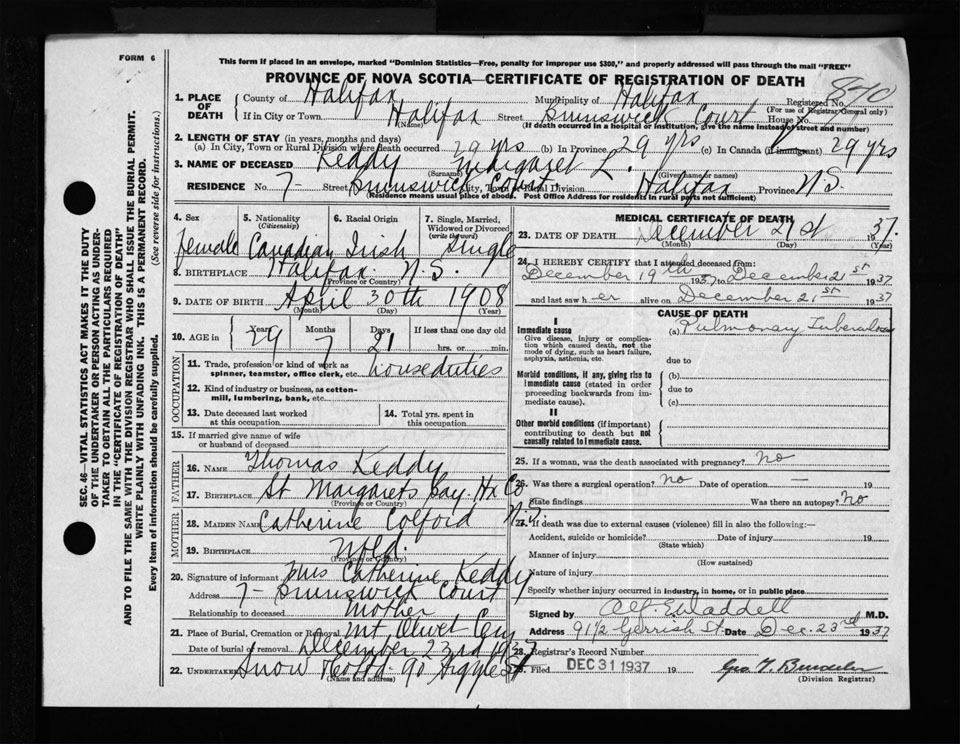 FORM 6
This form if placed in an envelope, marked "Dominion Statistics—Free, penalty for improper use $300," and properly addressed will pass through the mail "FREE"
PROVINCE OF NOVA SCOTIA—CERTIFICATE OF REGISTRATION OF DEATH
SEC. 46—VITAL STATISTICS ACT MAKES IT THE DUTY
OF THE UNDERTAKER OR PERSON ACTING AS UNDER-
TAKER TO OBTAIN ALL THE PARTICULARS REQUIRED
IN THE "CERTIFICATE OF REGISTRATION OF DEATH"
AND TO FILE THE SAME WITH THE DIVISION REGISTRAR WHO SHALL ISSUE THE BURIAL PERMIT.
WRITE PLAINLY WITH UNFADING INK. THIS IS A PERMANENT RECORD.
Every item of information should be carefully supplied. (See reverse side for instructions.)
1. PLACE OF DEATH
County of Halifax Municipality of Halifax Registered No. 840
(For use of Registrar General only)
If in City or Town Halifax Street Brunswick Court House No. 7
(Name)
(If death occurred in a hospital or institution, give the name instead of street and number)
2. LENGTH OF STAY (in years, months and days)
(a) In City, Town or Rural Division where death occurred 29 yrs (b) In Province 29 yrs (c) In Canada (if immigrant) 29 yrs
3. NAME OF DECEASED Keddy Margaret L.
(Surname) (Given name or names)
RESIDENCE No. 7 Street Brunswick Court City, Town or Rural Division Halifax Province N.S.
(Residence means usual place of abode. Post Office Address for residents in rural parts not sufficient)
4. Sex Female
5. Nationality (Citizenship) Canadian
6. Racial Origin Irish
7. Single, Married, Widowed or Divorced (write the word) Single
8. BIRTHPLACE Halifax N.S.
(Province or Country)
9. DATE OF BIRTH April 30th 1908
(Month) (Day) (Year)
10. AGE in Years 29 Months 7 Days 21 If less than one day old hrs. or min.
OCCUPATION
11. Trade, profession or kind of work as spinner, teamster, office clerk, etc. houseduties
12. Kind of industry or business, as cotton-mill, lumbering, bank, etc.
13. Date deceased last worked at this occupation
14. Total yrs. spent in this occupation
15. If married give name of wife or husband of deceased
FATHER
16. NAME Thomas Keddy
17. BIRTHPLACE St Margarets Bay. Hx Co N.S.
(Province or Country)
MOTHER
18. MAIDEN NAME Catherine Colford
19. BIRTHPLACE Nfld.
(Province or Country)
20. Signature of informant Mrs Catherine Keddy
Address 7- Brunswick Court
Relationship to deceased Mother
21. Place of Burial, Cremation or Removal Mt. Olivet Cem
Date of burial or removal December 23rd 1937
22. UNDERTAKER Snow & Co Ltd 90 Argyle St
(Name and address)
MEDICAL CERTIFICATE OF DEATH
23. DATE OF DEATH December 21st 1937.
(Month) (Day) (Year)
24. I HEREBY CERTIFY that I attended deceased from:
December 19th 1937 to December 21st 1937
and last saw her alive on December 21st 1937
CAUSE OF DEATH
I
Immediate cause (a) Pulmonary Tuberculosis
Give disease, injury or complication which caused death, not the mode of dying, such as heart failure, asphyxia, asthenia, etc.
due to
Morbid conditions, if any, giving rise to immediate cause (stated in order proceeding backwards from immediate cause).
(b)
due to
(c)
II
Other morbid conditions (if important) contributing to death but not causally related to immediate cause.
25. If a woman, was the death associated with pregnancy? no
26. Was there a surgical operation? no Date of operation — 19
State findings Was there an autopsy? no
27. If death was due to external causes (violence) fill in also the following:—
Accident, suicide or homicide? Date of injury 19
(State which)
Manner of injury
(How sustained)
Nature of injury
Specify whether injury occurred in industry, in home, or in public place
Signed by Alf. E. Waddell M.D.
Address 91½ Gerrish St. Date Dec. 23rd 1937
28. Registrar's Record Number
29. Filed DEC 31 1937 19
(Division Registrar)